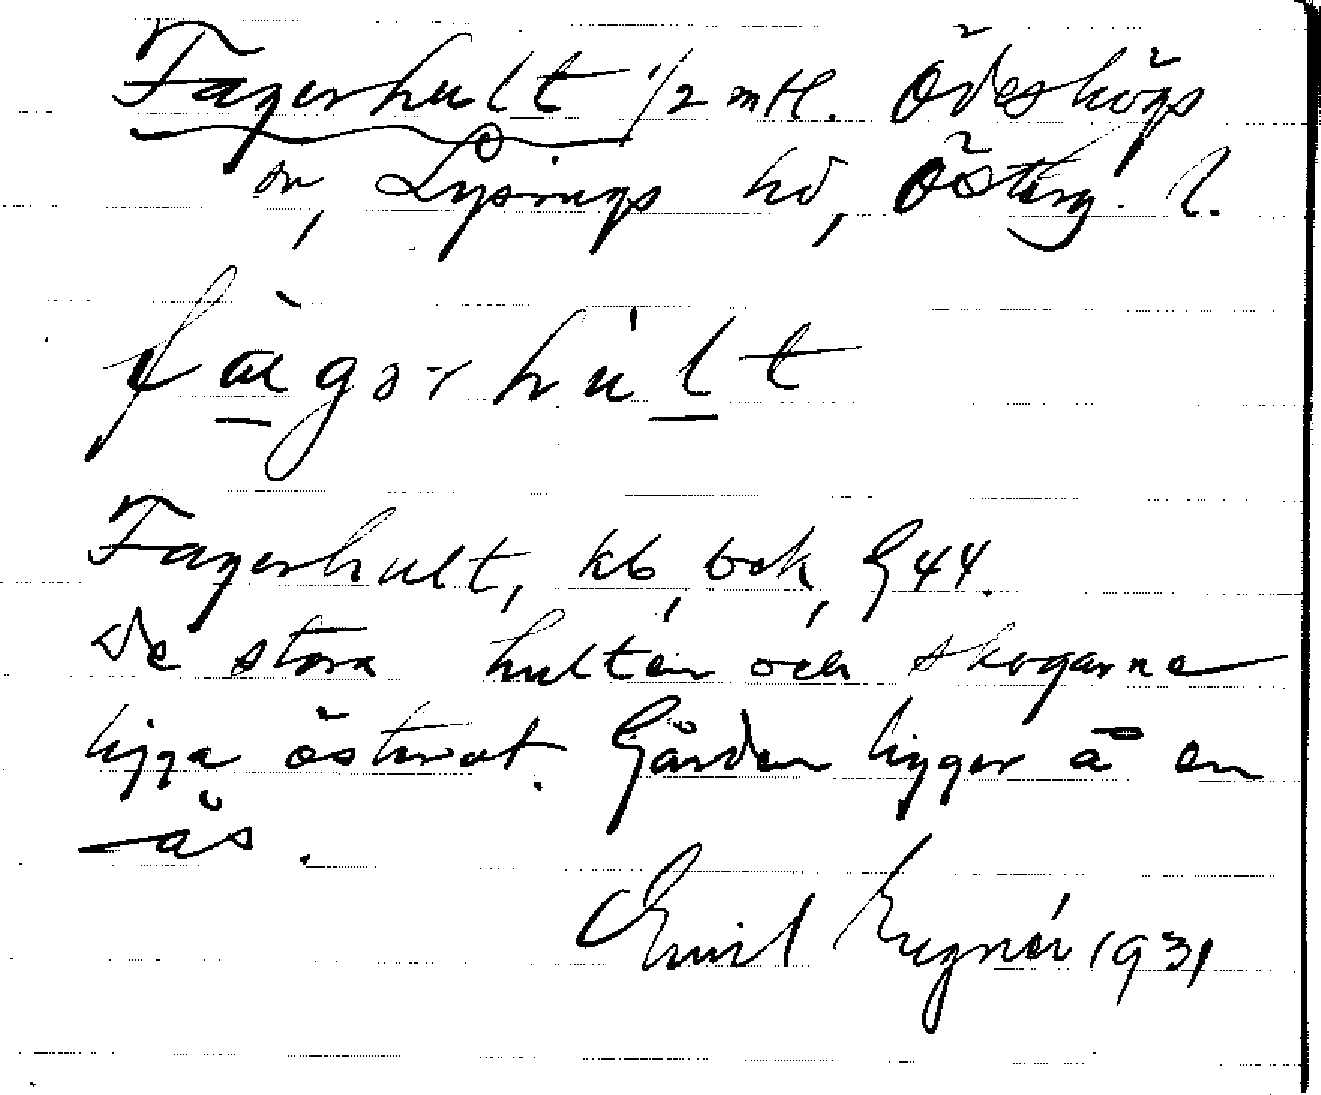 Fagerhult 1/2 mtl. Ödeshögs
sn, Lysings hd, Österg. l.
fàgərhu̍lt
Fagerhult, kb, bok, G 44.
De stora hulten och skogarne
ligga österut. Gården ligger å en
ås.
Emil 1931